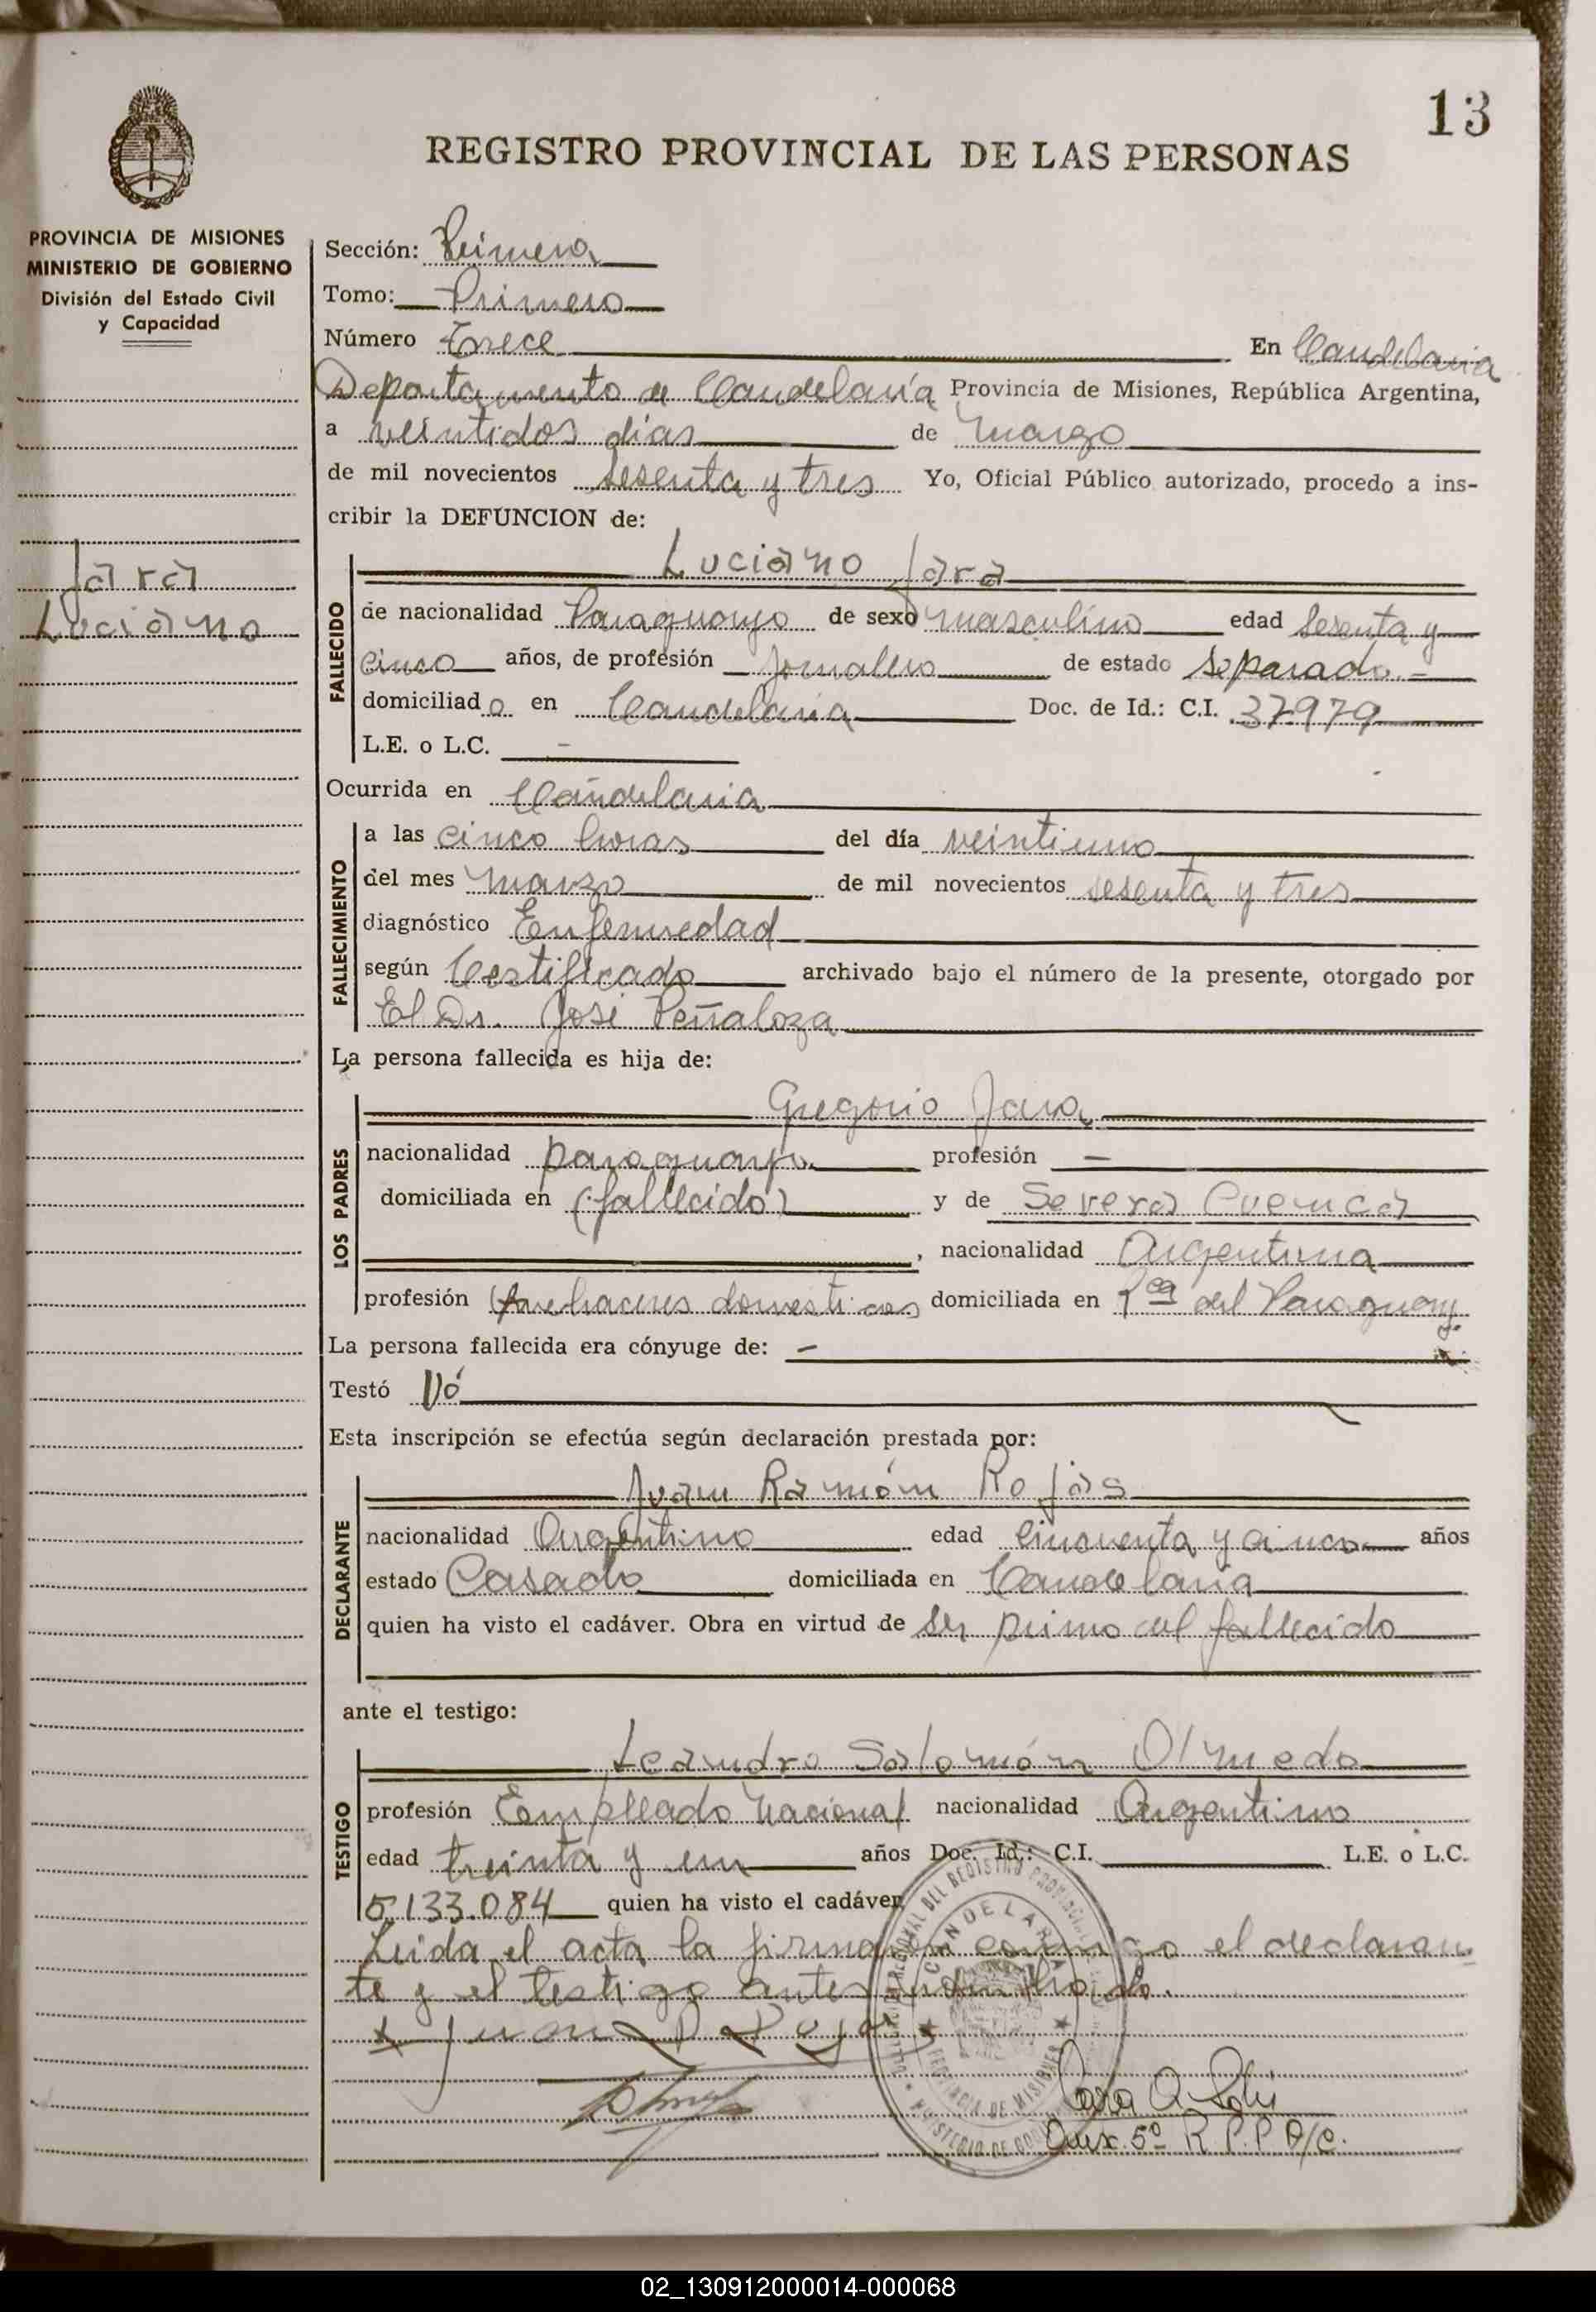 13
REGISTRO PROVINCIAL DE LAS PERSONAS
PROVINCIA DE MISIONES
MINISTERIO DE GOBIERNO
División del Estado Civil
y Capacidad
Jara
Luciano
Sección: Primera
Tomo: Primero
Número Trece En Candelaria
Departamento de Candelaria Provincia de Misiones, República Argentina,
a veintidos dias de marzo
de mil novecientos sesenta y tres Yo, Oficial Público autorizado, procedo a ins-
cribir la DEFUNCION de:
Luciano Jara
FALLECIDO
de nacionalidad Paraguayo de sexo masculino edad sesenta y
cinco años, de profesión Jornalero de estado separado.-
domiciliado en Candelaria Doc. de Id.: C.I. 37979
L.E. o L.C. -
Ocurrida en Candelaria
FALLECIMIENTO
a las cinco horas del día veintiuno
del mes marzo de mil novecientos sesenta y tres
diagnóstico Enfermedad
según Certificado archivado bajo el número de la presente, otorgado por
El Dr. José Peñaloza
La persona fallecida es hija de:
Gregorio Jara
LOS PADRES
nacionalidad paraguayo profesión —
domiciliada en (fallecido) y de Severa Cuenca
, nacionalidad Argentina
profesión Quehaceres domesticos domiciliada en Rca del Paraguay.
La persona fallecida era cónyuge de: -
Testó Nó
Esta inscripción se efectúa según declaración prestada por:
Juan Ramón Rojas
DECLARANTE
nacionalidad Argentino edad cincuenta y cinco años
estado Casado domiciliada en Candelaria
quien ha visto el cadáver. Obra en virtud de ser primo del fallecido
ante el testigo:
Leandro Salomón Olmedo
TESTIGO
profesión Empleado Nacional nacionalidad Argentino
edad treinta y un años Doc. Id.: C.I. L.E. o L.C.
5.133.084 quien ha visto el cadáver
Leida el acta la firman conmigo el declaran
te y el testigo antes nombrado.
Juan R Rojas
Aux. 5º R.P.P A/C.
CANDELARIA
PROVINCIA DE MISIONES
02_130912000014-000068